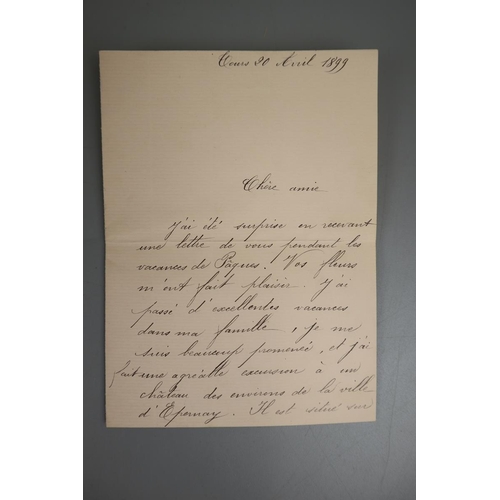 Tours 20 Avril 1899
Chère amie
J'ai été surprise en recevant
une lettre de vous pendant les
vacances de Pâques. Vos fleurs
m'ont fait plaisir. J'ai
passé d'excellentes vacances
dans ma famille, je me
suis beaucoup promenée, et j'ai
fait une agréable excursion à un
château des environs de la ville
d'Epernay. Il est situé sur